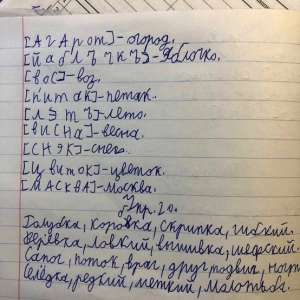 [АгАрот]-огород.
[йаблъчкъ]-Яблочко.
[вос]-воз.
[п'итак]-петак.
[лэтъ]-лето.
[виСНа]-весна.
[СНЭК]-снег.
[Цвиток]-цветок.
[МАСКВА]-москва.
Упр. 20.
Голубка, коровка, скрипка, гибкий.
Верёвка, ловкий, вишивка, шефский.
Сапог, поток, враг, друг, подвиг,
Селёдка, редкий, меткий, Молотьба.